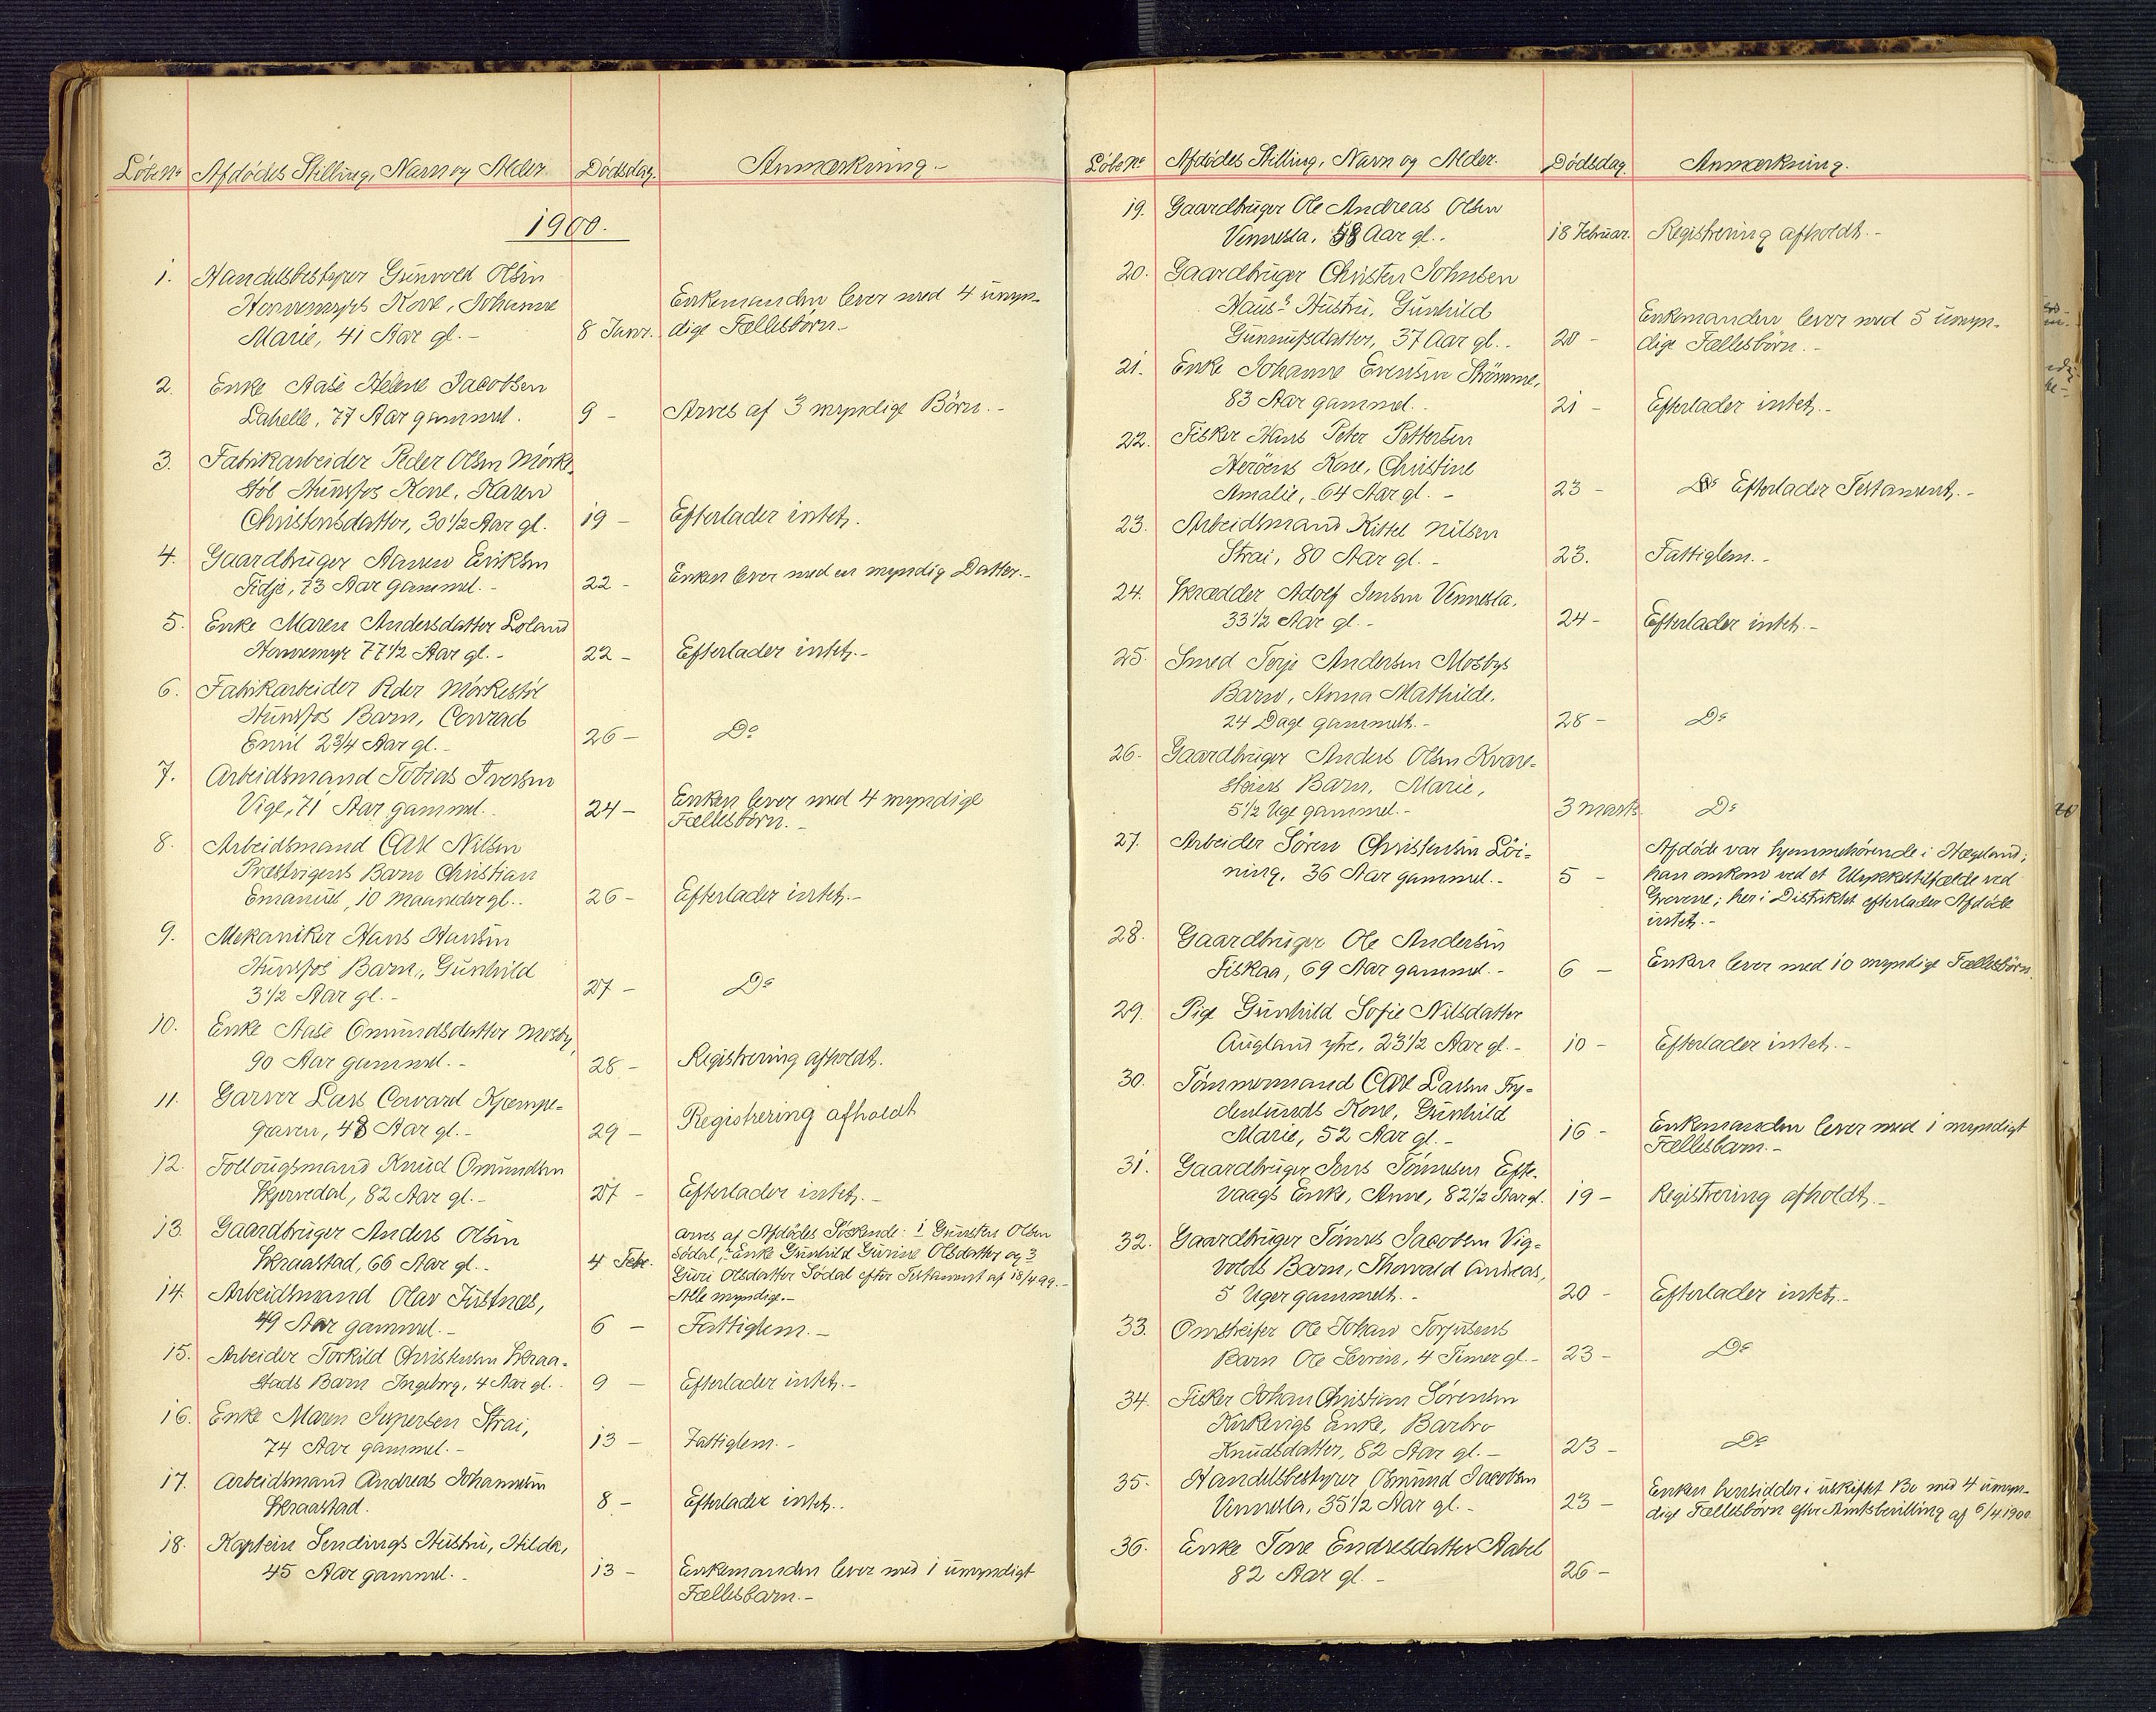 Löbe No Afdödes Stilling, Navn og Alder Dödsdag. Anmærkning.-
1900.
1. Handelsbestyrer Gunvold Olsen
Homemyrs Kone, Johanne
Marie, 41 Aar gl.- 8 Janr.
Enkemanden lever med 4 umyn-
dige Fællesbörn.-
2. Enke Aase Helene Jacobsen
Lahelle, 77 Aar gammel. 9 - Arves af 3 myndige Börn.-
3. Fabrikarbeider Peder Olsen Mörke-
stöl Hunsfos Kone, Karen
Christensdatter, 30 1/2 Aar gl. 19 - Efterlader intet.
4. Gaardbruger Aanen Eriksen
Tidje, 73 Aar gammel.- 22 - Enken lever med en myndig Datter.-
5. Enke Maren Andersdatter Loland
Homemyr 77 1/2 Aar gl.- 22 - Efterlader intet.-
6. Fabrikarbeider Peder Mörkestöl
Hunsfos Barn, Conrad
Emil 2 3/4 Aar gl.- 26 - Do
7. Arbeidsmand Tobias Iversen
Vige, 71 Aar gammel. 24 - Enken lever med 4 myndige
Fællesbörn.-
8. Arbeidsmand Carl Nilsen
Præstvigens Barn Christian
Emanuel, 10 Maaneder gl.. 26 - Efterlader intet.-
9. Mekaniker Hans Hansen
Hunsfos Barn, Gunhild
3 1/2 Aar gl.- 27 - Do
10. Enke Aase Omundsdatter Mosby,
90 Aar gammel.- 28 - Registrering afholdt.
11. Garver Lars Coward Kjempe-
graven, 48 Aar gl.- 29 - Registrering afholdt
12. Follougsmand Knud Omundsen
Skjerredal, 82 Aar gl.- 27 - Efterlader intet.-
13. Gaardbruger Anders Olsen
Skraastad, 66 Aar gl.- 4 Febr.
Arves af Afdödes Söskende: 1 Gunsten Olsen
Södal, 2 Enke Gunhild Gurine Olsdatter og 3
Guri Olsdatter Södal efter Testament af 18/4 99.-
Alle myndige.-
14. Arbeidsmand Olav Justnæs,
49 Aar gammel.- 6 - Fattiglem.-
15. Arbeider Torkild Christensen Skraa-
stads Barn Ingeborg, 4 Aar gl.. 9 - Efterlader intet.-
16. Enke Maren Jespersen Strai,
74 Aar gammel.- 13 - Fattiglem.-
17. Arbeidsmand Andreas Johannesen
Skraastad. 8 - Efterlader intet..
18. Kaptein Sendings Hustru, Hilda,
45 Aar gammel.- 13 - Enkemanden lever med 1 umyndigt
Fællesbarn.-
Löbe No Afdödes Stilling, Navn og Alder. Dödsdag. Anmærkning.
19. Gaardbruger Ole Andreas Olsen
Vennesla, 48 Aar gl.. 18 Februar. Registrering afholdt.-
20. Gaardbruger Christen Johnsen
Haus's Hustru, Gunhild
Gunnufsdatter, 37 Aar gl.. 20 -
Enkemanden lever med 5 umyn-
dige Fællesbörn.-
21. Enke Johanne Evensen Strömme,
83 Aar gammel.. 21 - Efterlader intet.-
22. Fisker Hans Peter Pettersen
Heröens Kone, Christine
Amalie, 64 Aar gl.- 23 - Efterlader Testament.-
23. Arbeidsmand Kittel Nilsen
Strai, 80 Aar gl.- 23. Fattiglem.-
24. Skrædder Adolf Jensen Vennesla,
33 1/2 Aar gl.- 24 - Efterlader intet.-
25. Smed Terje Andersen Mosbys
Barn, Anna Mathilde,
24 Dage gammelt.- 28 - Do
26. Gaardbruger Anders Olsen Kvare-
steins Barn, Marie,
5 1/2 Uge gammel.- 3 Marts. Do
27. Arbeider Sören Christensen Löi-
ning, 36 Aar gammel.- 5 -
Afdöde var hjemmehörende i Hægeland;
han omkom ved et Ulykkestilfælde ved
Grovene; her i Distriktet efterlader Afdöde
intet.-
28. Gaardbruger Ole Andersen
Fiskaa, 69 Aar gammel.- 6 - Enken lever med 10 myndige Fællesbörn.
29. Pige Gunhild Sofie Nilsdatter
Augland ytre, 23 1/2 Aar gl.- 10 - Efterlader intet.-
30. Tömmermand Carl Larsen Fry-
denlunds Kone, Gunhild
Marie, 52 Aar gl.- 16 - Enkemanden lever med 1 myndigt
Fællesbarn.-
31. Gaardbruger Jens Tönnesen Efte-
vaags Enke, Anne, 82 1/2 Aar gl. 19 - Registrering afholdt.-
32. Gaardbruger Tönnes Jacobsen Vig-
volds Barn, Thorvald Andreas,
5 Uger gammelt.- 20 - Efterlader intet.-
33. Omstreifer Ole Johan Torjusens
Barn Ole Servin, 4 Timer gl.- 23 - Do
34. Fisker Johan Christian Sörensen
Kirkevigs Enke, Barbro
Knudsdatter, 82 Aar gl.- 23 - Do
35. Handelsbestyrer Osmund Jacobsen
Vennesla, 35 1/2 Aar gl.- 23 -
Enken hensidder i uskiftet Bo med 4 umyn-
dige Fællesbörn efter Amtsbevilling af 6/4 1900.
36. Enke Tone Endresdatter Aabel
82 Aar gl.- 26 -